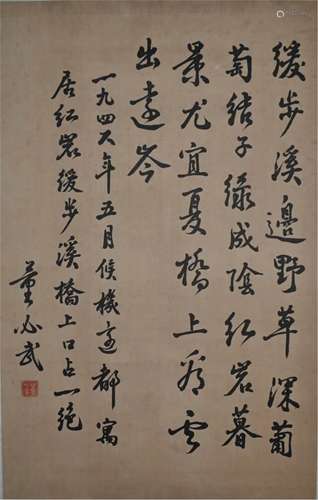 缓步溪邊野草深葡
萄结子绿成陰红岩暮
景尤宜夏橋上看雲
出遠岑
一九四六年五月候機還都寓
居红岩缓步溪橋上口占一绝
董必武